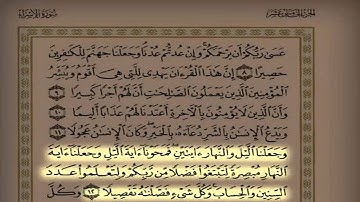 الجزء الخامس عشر
سورة الإسراء
عَسَىٰ رَبُّكُمْ أَن يَرْحَمَكُمْ ۚ وَإِنْ عُدتُّمْ عُدْنَا ۘ وَجَعَلْنَا جَهَنَّمَ لِلْكَافِرِينَ
حَصِيرًا ٨ إِنَّ هَٰذَا الْقُرْءَانَ يَهْدِى لِلَّتِى هِىَ أَقْوَمُ وَيُبَشِّرُ
الْمُؤْمِنِينَ الَّذِينَ يَعْمَلُونَ الصَّٰلِحَٰتِ أَنَّ لَهُمْ أَجْرًا كَبِيرًا ٩
وَأَنَّ الَّذِينَ لَا يُؤْمِنُونَ بِالْءَاخِرَةِ أَعْتَدْنَا لَهُمْ عَذَابًا أَلِيمًا ١٠
وَيَدْعُ الْإِنسَٰنُ بِالشَّرِّ دُعَاءَهُ بِالْخَيْرِ ۖ وَكَانَ الْإِنسَٰنُ عَجُولًا ١١
وَجَعَلْنَا الَّيْلَ وَالنَّهَارَ ءَايَتَيْنِ ۖ فَمَحَوْنَا ءَايَةَ الَّيْلِ وَجَعَلْنَا ءَايَةَ
النَّهَارِ مُبْصِرَةً لِّتَبْتَغُوا۟ فَضْلًا مِّن رَّبِّكُمْ وَلِتَعْلَمُوا۟ عَدَدَ
السِّنِينَ وَالْحِسَابَ ۚ وَكُلَّ شَىْءٍ فَصَّلْنَٰهُ تَفْصِيلًا ١٢ وَكُلَّ